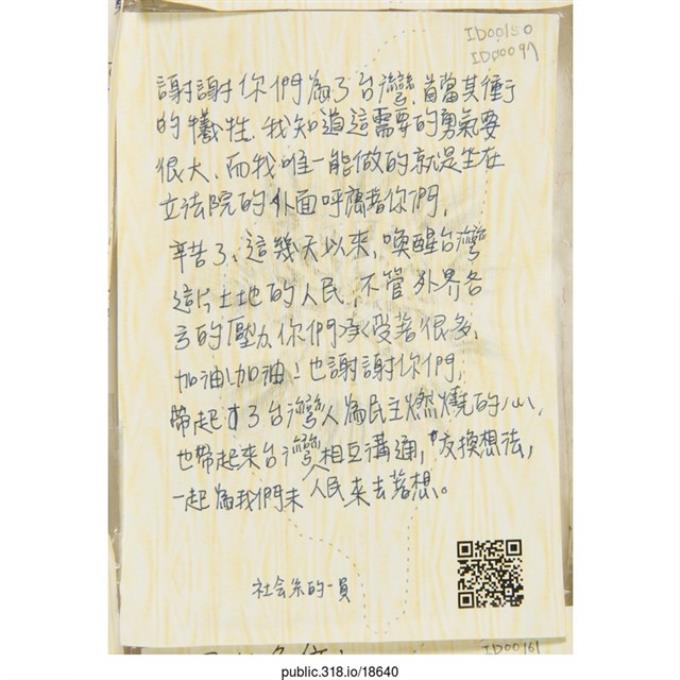 ID00150
ID00097
謝謝你們為了台灣,首當其衝
的犧牲,我知道這需要的勇氣要
很大,而我唯一能做的就是坐在
立法院的外面呼應著你們,
辛苦了,這幾天以來,喚醒台灣
這片土地的人民,不管外界各
方的壓力,你們承受著很多,
加油!加油!也謝謝你們,
帶起了台灣人為民主燃燒的心,
也帶起來台灣人相互溝通,交換想法,
一起為我們未來去著想。
人民
社会系的一員
ID00161
public.318.io/18640